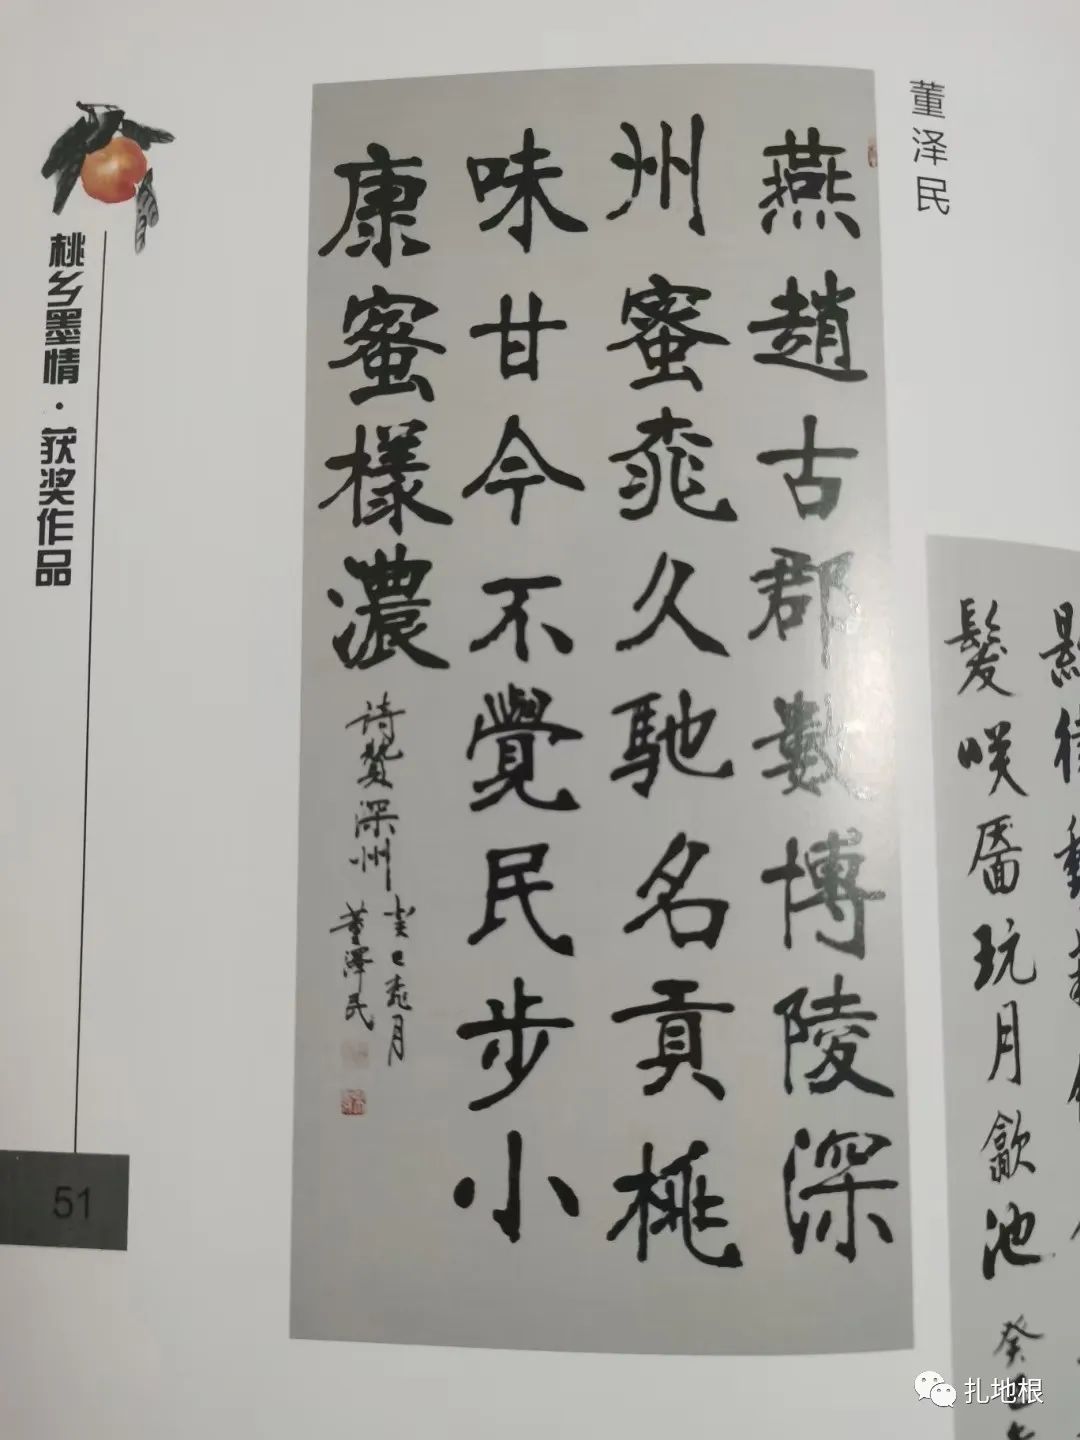 董泽民
燕趙古郡數博陵深
州蜜桃久馳名貢桃
味甘今不覺民步小
康蜜樣濃
诗贊深州
癸巳桃月
董澤民
桃乡墨情·获奖作品
51
髮咲靨玩月歙池
癸巳
扎地根